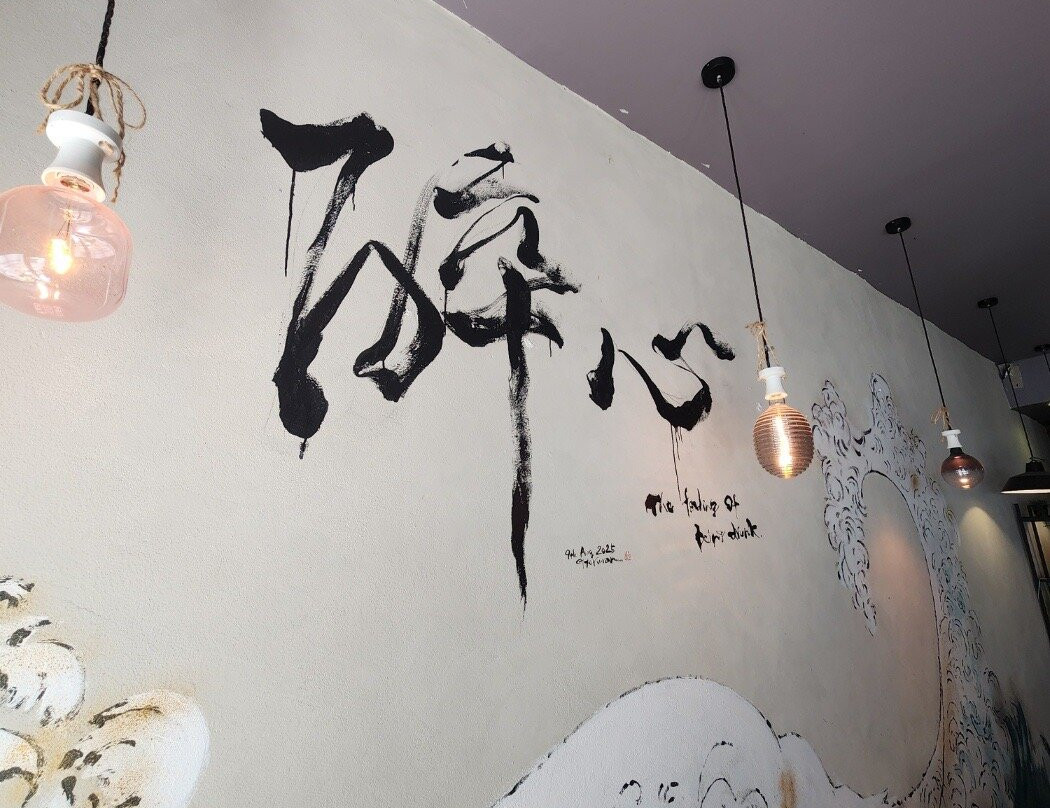 醉心
The feeling of
being drunk.
9th Aug 2025